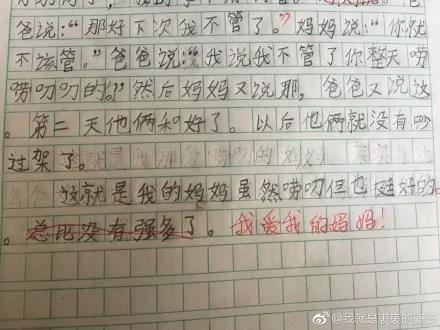 爸说:“那好下次我不管了。”妈妈说:“你就
不该管。”爸爸说:“我说我不管了你整天唠
唠叨叨的!”然后妈妈又说那,爸爸又说这
。第二天他俩和好了。以后他俩就没有吵
过架了。
这就是我的妈妈虽然唠叨但也挺好的
。总比没有强多了。我爱我的妈妈!
@我就是衷衷的婆婆